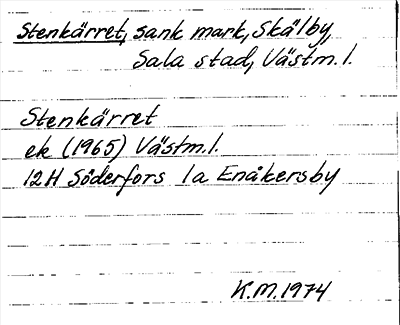 Stenkärret, sank mark, Skälby,
Sala stad, Västm.l.
Stenkärret
ek (1965) Västm.l.
12H Söderfors 1a Enåkersby
K.M. 1974